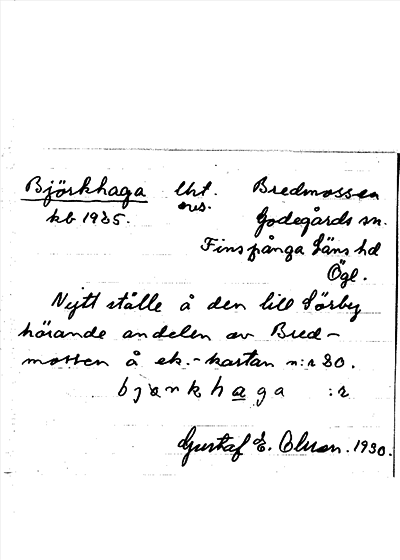 Björkhaga lht. Bredmossen
kb 1925. ous. Godegårds sn.
Finspånga läns hd
Ögl.
Nytt ställe å den till Sörby
hörande andelen av Bred-
mossen å ek.-kartan n:r 80.
bjọrkhaga :r
Gustaf E. Olsson. 1930.